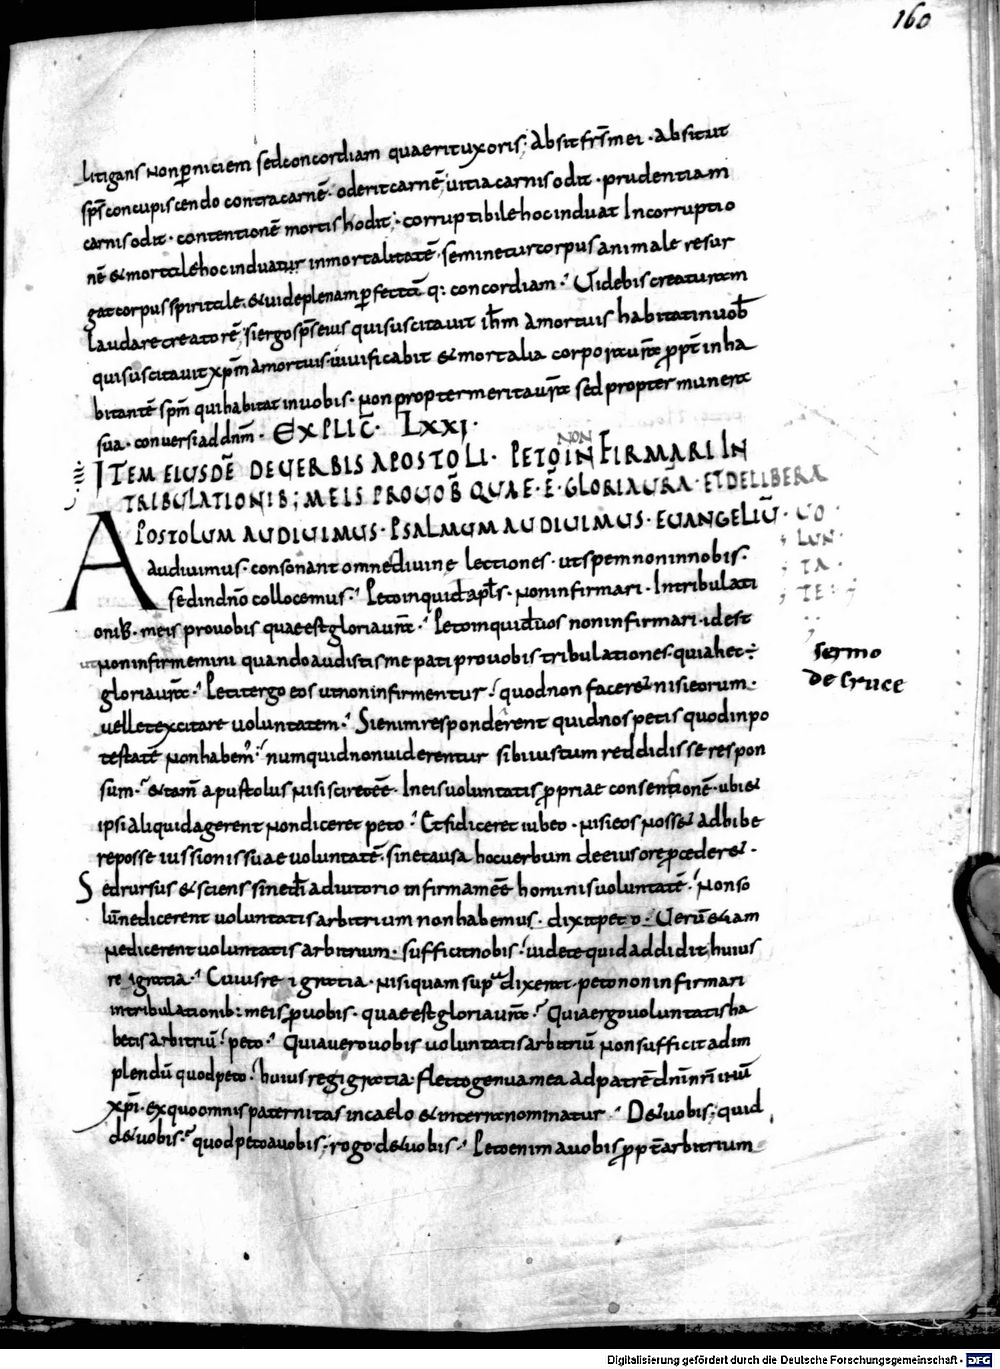 160
litigans non p̲niciem sed concordiam quaerit uxoris; absit fr̄s mei · absit ut
sp̄s concupiscendo contra carnē · oderit carnē; uitia carnis odit · prudentiam
carnis odit · contentionē mortis hodit; corruptibile hoc induat Incorruptio
nē & mortale hoc induatur inmortalitatē; seminetur corpus animale resur
gat corpus spiritale · & uide plenam p̲fectā q: concordiam · Uidebis creaturam
laudare creatorē; si ergo sp̄s eius qui suscitauit ih̄m a mortuis habitat in uob̄
qui suscitauit xp̄m a mortuis uiuificabit & mortalia corpora ur̄a p̲p̄t inha
bitantē sp̄m qui habitat in uobis · non propter merita ur̄a sed propter munera
sua · conuersi ad dn̄m · EXPLIC̄ · LXXI ·
ITEM EIUSDĒ DE UERBIS APOSTOLI · PETO NON INFIRMARI IN
TRIBULATIONIB; MEIS PRO UOB̄ QUAE · Ē · GLORIA UR̄A · ET DE LIBERA
UO
LUN
TA
TE
APOSTOLUM AUDIUIMUS · PSALMUM AUDIUIMUS · EUANGELIŪ ·
audiuimus · consonant omnes diuine lectiones · ut spem non in nobis ·
sed in dn̄o collocemus · Peto inquid apl̄s · non infirmari · In tribulati
onib · meis pro uobis quae est gloria ur̄a · Peto inquid uos non infirmari · id est
ut non infirmemini quando audistis me pati pro uobis tribulationes · quia hec ÷
gloria ur̄a · Petit ergo eos ut non infirmentur · quod non faceret nisi eorum ·
uellet excitare uoluntatem · Si enim responderent quid nos petis quod in po
testatē non habem; numquid non uiderentur sibi iustum reddidisse respon
sum · & tam̄ apustolus nisi sciret eē · In eis uoluntatis p̲priae consentionē · ubi &
ipsi aliquid agerent non diceret peto · Et si diceret iubeo · nisi eos nosset adhibe
re posse iussioni suae uoluntatē · sine causa hoc uerbum de eius ore p̲cederet ·
Sed rursus & sciens sine dī adiutorio infirmam eē hominis uoluntatē · Non so
lū ne dicerent uoluntatis arbitrium non habemus · dixit peto · Uerū & iam
ne dicerent uoluntatis arbitrium · sufficit nobis · uidete quid addidit; huius
rei gratia · Cuius rei gratia · nisi quam supra dixerat · peto non infirmari
in tribulationib: meis p̲ uobis · quae est gloria ur̄a · Quia ergo uoluntatis ha
betis arbitriū · peto · Quia uero uobis uoluntatis arbitriū non sufficit adim
plendū quod peto · huius regi gratia · flecto genua mea ad patrē dn̄i nr̄i ihū
xp̄i · ex quo omnis paternitas in caelo & in terra nominatur · Det uobis; quid
det uobis · quod peto a uobis; rogo det uobis · Peto enim a uobis p̲pt̄ arbitrium
sermo
de cruce
Digitalisierung gefördert durch die Deutsche Forschungsgemeinschaft - DFG